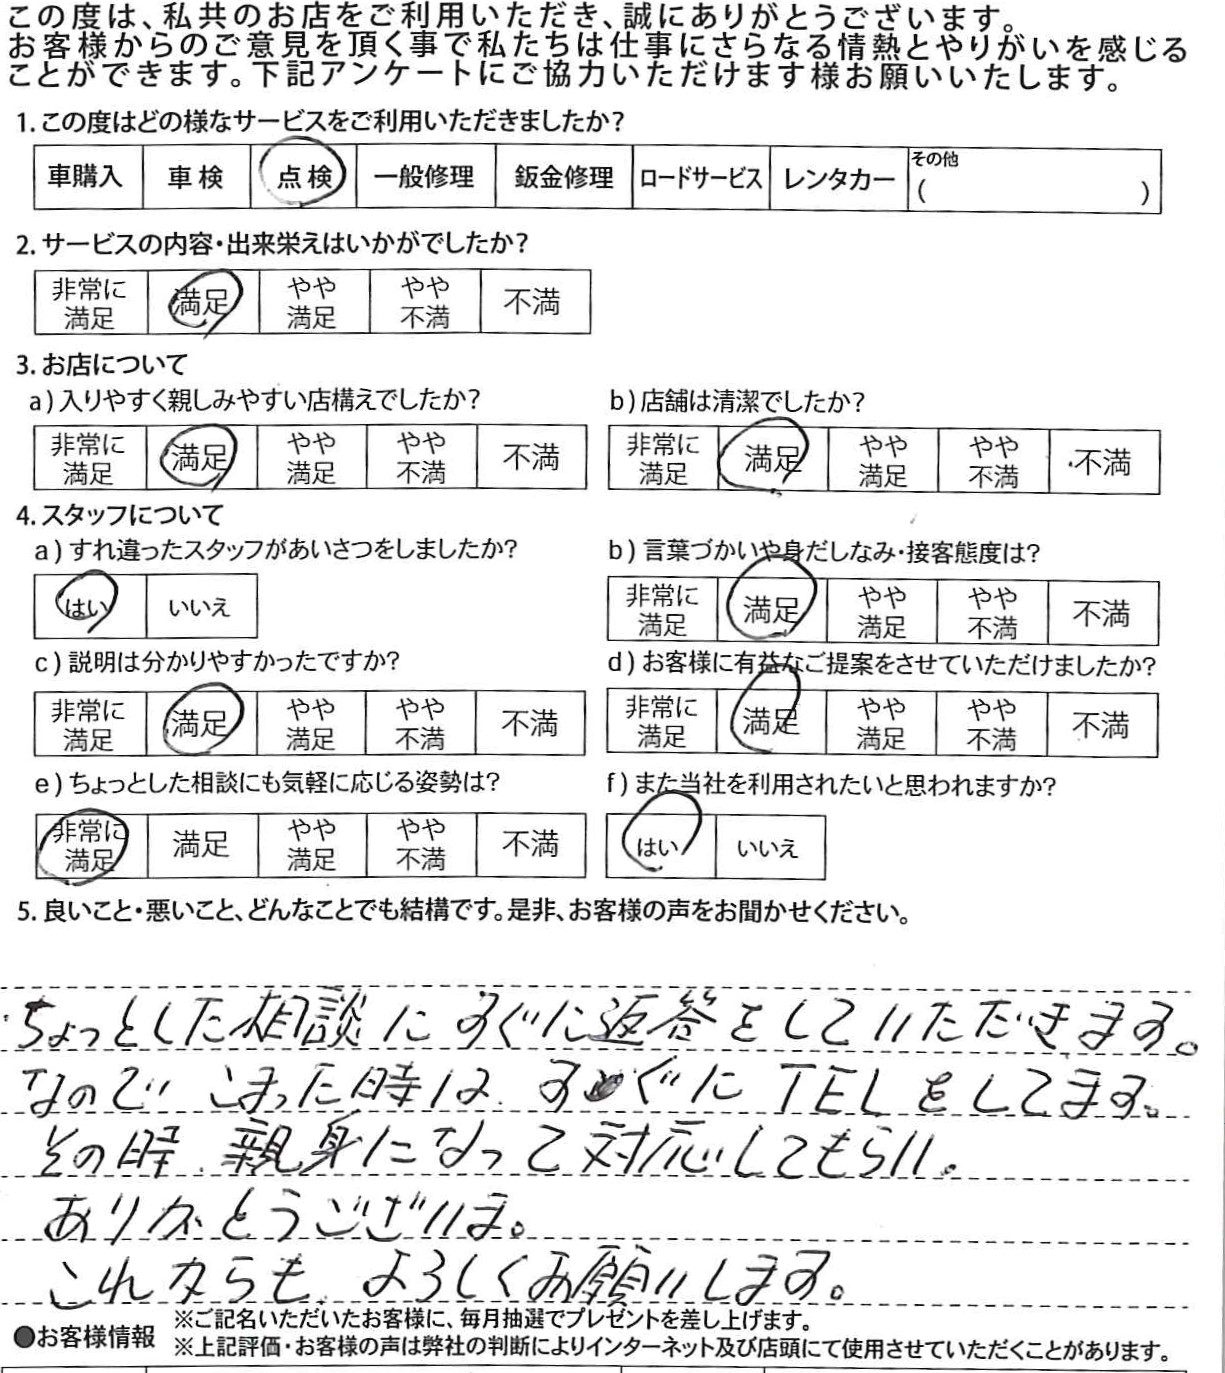 この度は、私共のお店をご利用いただき、誠にありがとうございます。
お客様からのご意見を頂く事で私たちは仕事にさらなる情熱とやりがいを感じる
ことができます。下記アンケートにご協力いただけます様お願いいたします。
1. この度はどの様なサービスをご利用いただきましたか?
車購入 車検 点検 一般修理 鈑金修理 ロードサービス レンタカー その他 ( )
2. サービスの内容・出来栄えはいかがでしたか?
非常に満足 満足 やや満足 やや不満 不満
3. お店について
a) 入りやすく親しみやすい店構えでしたか?
非常に満足 満足 やや満足 やや不満 不満
b) 店舗は清潔でしたか?
非常に満足 満足 やや満足 やや不満 不満
4. スタッフについて
a) すれ違ったスタッフがあいさつをしましたか?
はい いいえ
b) 言葉づかいや身だしなみ・接客態度は?
非常に満足 満足 やや満足 やや不満 不満
c) 説明は分かりやすかったですか?
非常に満足 満足 やや満足 やや不満 不満
d) お客様に有益なご提案をさせていただけましたか?
非常に満足 満足 やや満足 やや不満 不満
e) ちょっとした相談にも気軽に応じる姿勢は?
非常に満足 満足 やや満足 やや不満 不満
f) また当社を利用されたいと思われますか?
はい いいえ
5. 良いこと・悪いこと、どんなことでも結構です。是非、お客様の声をお聞かせください。
ちょっとした相談にすぐに返答をしていただきます。
なので こまった時は すぐに TELをしてます。
その時、親身になって対応してもらい。
ありがとうございま。
これからも、よろしくお願いします。
●お客様情報
※ご記名いただいたお客様に、毎月抽選でプレゼントを差し上げます。
※上記評価・お客様の声は弊社の判断によりインターネット及び店頭にて使用させていただくことがあります。